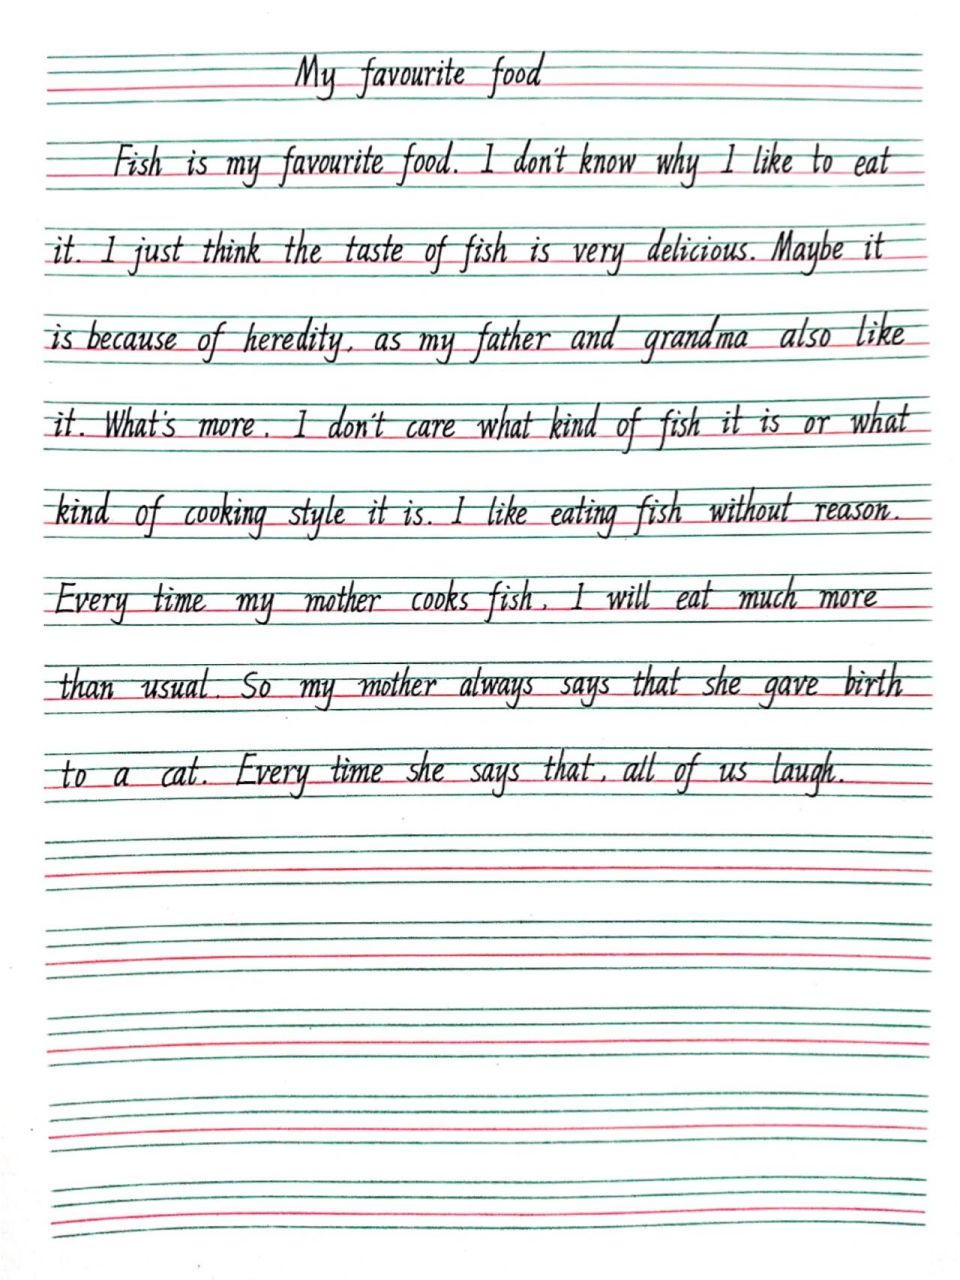 My favourite food
Fish is my favourite food. I don't know why I like to eat
it. I just think the taste of fish is very delicious. Maybe it
is because of heredity, as my father and grandma also like
it. What's more, I don't care what kind of fish it is or what
kind of cooking style it is. I like eating fish without reason.
Every time my mother cooks fish, I will eat much more
than usual. So my mother always says that she gave birth
to a cat. Every time she says that, all of us laugh.